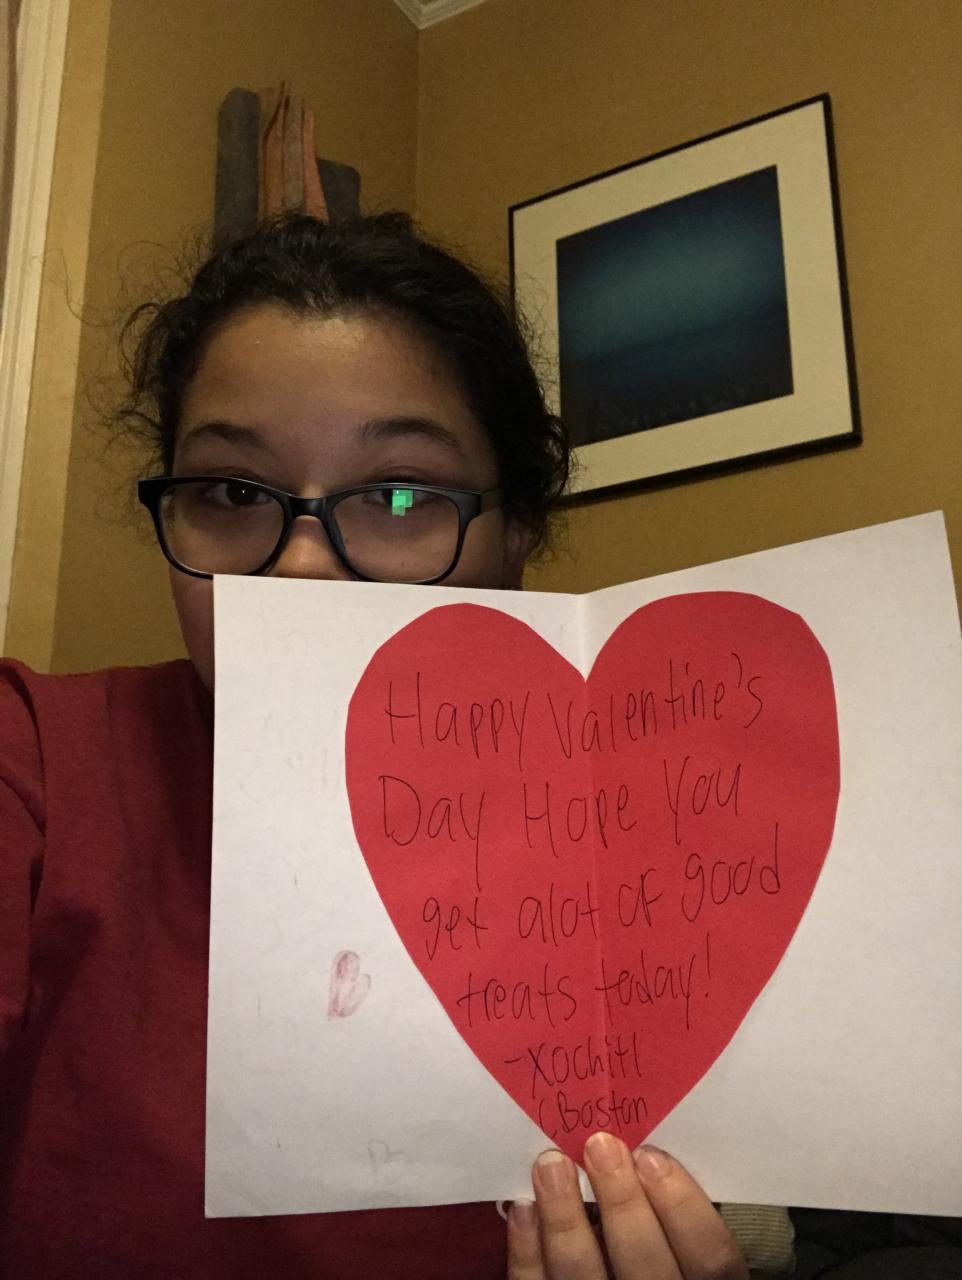 Happy Valentine's
Day Hope You
get alot of good
treats today!
-Xochitl
(Boston